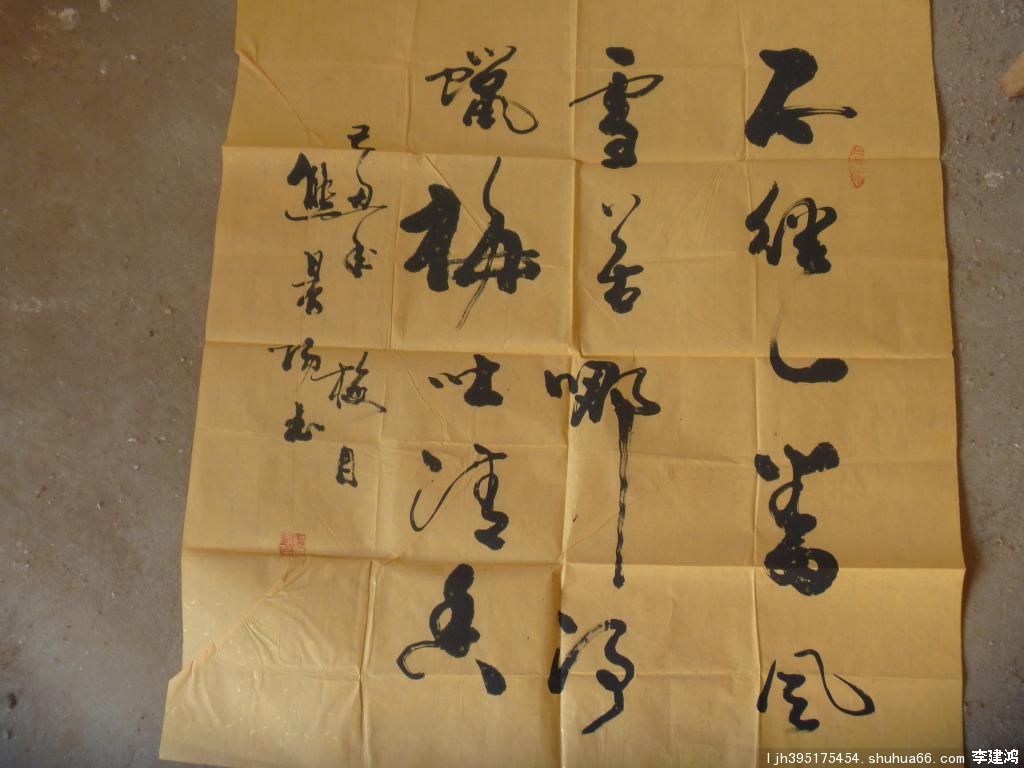 不经一番风
雪苦哪得
蜡梅吐清香
己丑年梅月
熊景阳书
ljh395175454. shuhua66. com 李建鸿